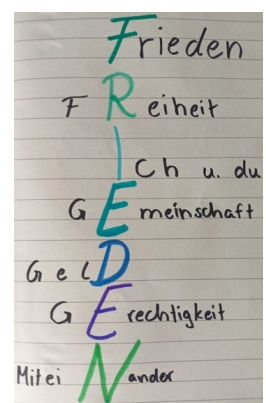 Frieden
FReiheit
ICh u. du
GEmeinschaft
GelD
GErechtigkeit
MiteiNander